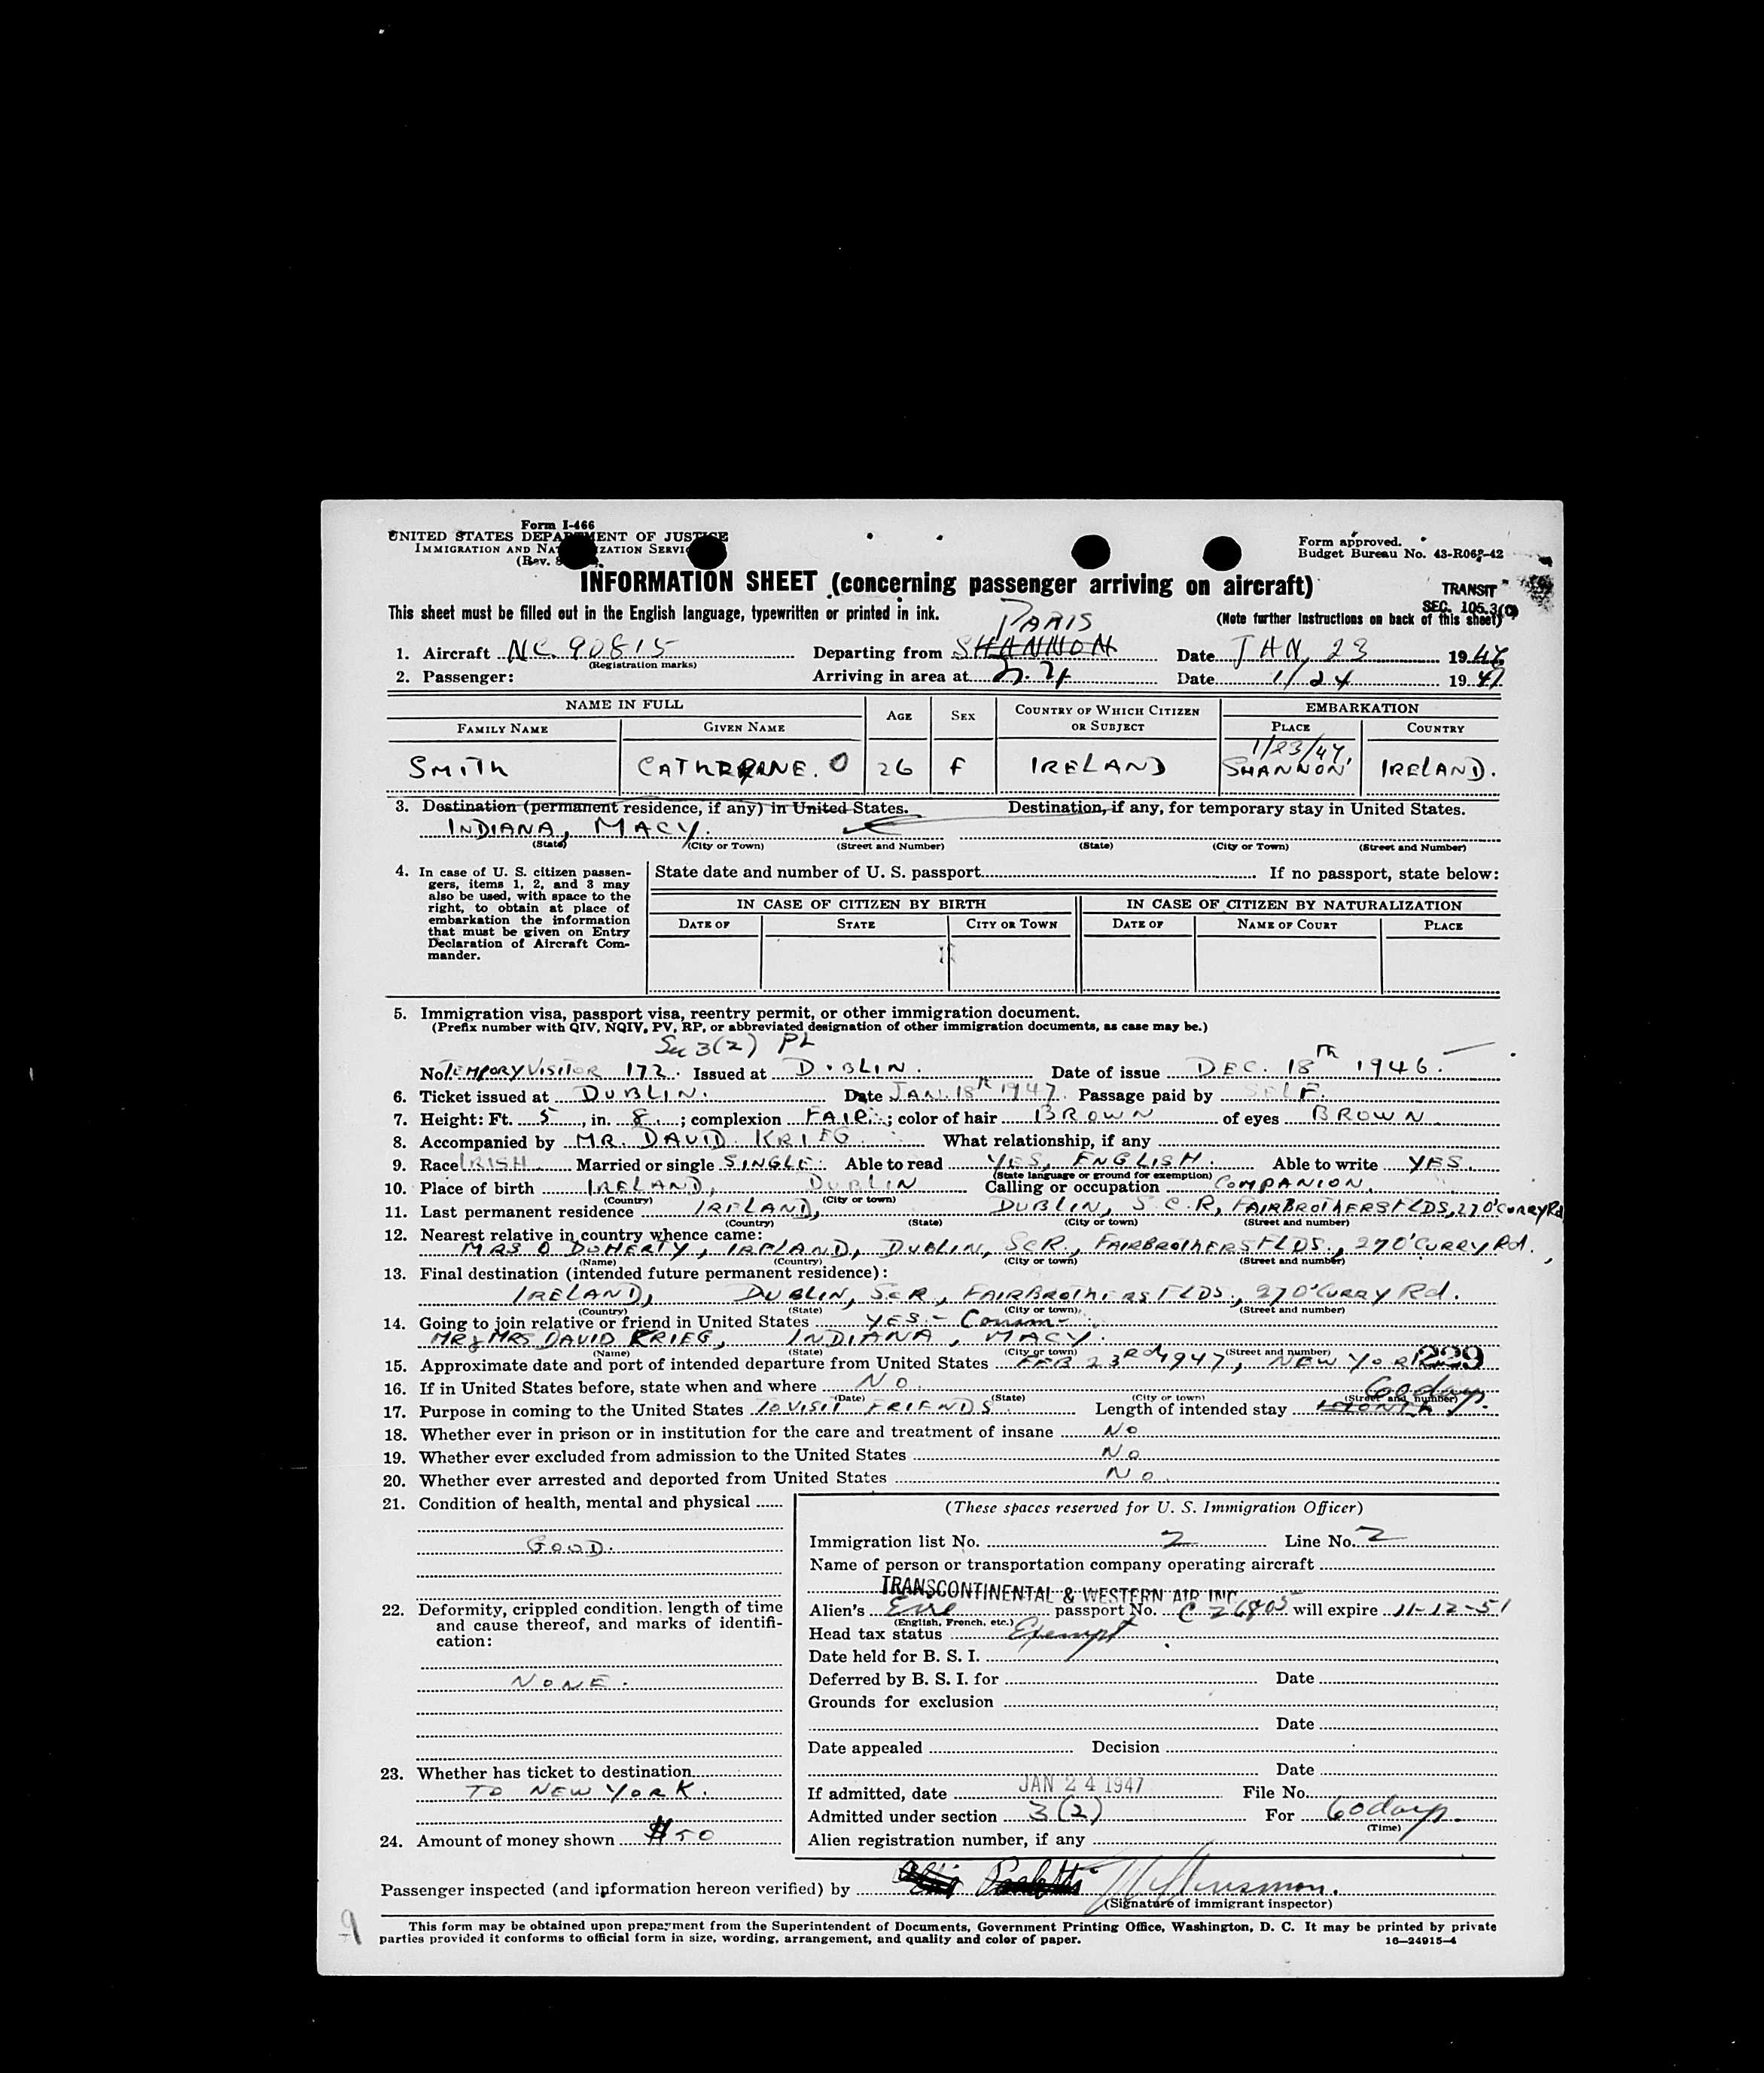 Form I-466
UNITED STATES DEPARTMENT OF JUSTICE
IMMIGRATION AND NATURALIZATION SERVICE
(Rev.
Form approved.
Budget Bureau No. 43-R068-42
INFORMATION SHEET (concerning passenger arriving on aircraft)
TRANSIT
SEC. 105.3(c)
This sheet must be filled out in the English language, typewritten or printed in ink.
(Note further instructions on back of this sheet)
PARIS
1. Aircraft NC 90815 Departing from SHANNON Date JAN 23 1947
(Registration marks)
2. Passenger: Arriving in area at N. Y. Date 1/24 1947
NAME IN FULL AGE SEX COUNTRY OF WHICH CITIZEN OR SUBJECT EMBARKATION
FAMILY NAME GIVEN NAME PLACE COUNTRY
1/23/47
SMITH CATHERINE. O 26 F IRELAND SHANNON IRELAND.
3. Destination (permanent residence, if any) in United States. Destination, if any, for temporary stay in United States.
INDIANA, MACY.
(State) (City or Town) (Street and Number) (State) (City or Town) (Street and Number)
4. In case of U. S. citizen passen-
gers, items 1, 2, and 3 may
also be used, with space to the
right, to obtain at place of
embarkation the information
that must be given on Entry
Declaration of Aircraft Com-
mander.
State date and number of U. S. passport If no passport, state below:
IN CASE OF CITIZEN BY BIRTH IN CASE OF CITIZEN BY NATURALIZATION
DATE OF STATE CITY OR TOWN DATE OF NAME OF COURT PLACE
5. Immigration visa, passport visa, reentry permit, or other immigration document.
(Prefix number with QIV, NQIV, PV, RP, or abbreviated designation of other immigration documents, as case may be.)
Sec 3(2) PL
No. TEMPORY VISITOR 172. Issued at DUBLIN. Date of issue DEC. 18TH 1946.
6. Ticket issued at DUBLIN. Date JAN. 18TH 1947. Passage paid by SELF.
7. Height: Ft. 5, in. 8; complexion FAIR; color of hair BROWN of eyes BROWN
8. Accompanied by MR. DAVID KRIEG What relationship, if any
9. Race IRISH Married or single SINGLE. Able to read YES, ENGLISH. Able to write YES.
(State language or ground for exemption)
10. Place of birth IRELAND, DUBLIN Calling or occupation COMPANION.
(Country) (City or town)
11. Last permanent residence IRELAND, DUBLIN, S.C.R, FAIRBROTHERS FLDS, 27 O'CURRY Rd
(Country) (State) (City or town) (Street and number)
12. Nearest relative in country whence came:
MRS O DOHERTY, IRELAND, DUBLIN, SCR., FAIRBROTHERS FLDS., 27 O'CURRY Rd.
(Name) (Country) (City or town) (Street and number)
13. Final destination (intended future permanent residence):
IRELAND, DUBLIN, SCR., FAIRBROTHERS FLDS., 27 O'CURRY Rd.
(Country) (State) (City or town) (Street and number)
14. Going to join relative or friend in United States YES -
MR & MRS DAVID KRIEG, INDIANA, MACY.
(Name) (State) (City or town) (Street and number)
229
15. Approximate date and port of intended departure from United States FEB 23RD 1947, NEW YORK
16. If in United States before, state when and where NO.
(Date) (State) (City or town) (Street and number)
60 days.
17. Purpose in coming to the United States TO VISIT FRIENDS Length of intended stay 1 MONTH
18. Whether ever in prison or in institution for the care and treatment of insane NO
19. Whether ever excluded from admission to the United States NO
20. Whether ever arrested and deported from United States NO.
21. Condition of health, mental and physical
GOOD.
22. Deformity, crippled condition, length of time
and cause thereof, and marks of identifi-
cation:
NONE.
23. Whether has ticket to destination
TO NEW YORK.
24. Amount of money shown $50
(These spaces reserved for U. S. Immigration Officer)
Immigration list No. 2 Line No. 2
Name of person or transportation company operating aircraft
TRANSCONTINENTAL & WESTERN AIR INC.
Alien's Eire passport No. C 26805 will expire 11-12-51
(English, French, etc.)
Head tax status Exempt
Date held for B. S. I.
Deferred by B. S. I. for Date
Grounds for exclusion
Date
Date appealed Decision
Date
If admitted, date JAN 24 1947 File No.
Admitted under section 3(2) For 60 days.
(Time)
Alien registration number, if any
Passenger inspected (and information hereon verified) by
(Signature of immigrant inspector)
This form may be obtained upon prepayment from the Superintendent of Documents, Government Printing Office, Washington, D. C. It may be printed by private
parties provided it conforms to official form in size, wording, arrangement, and quality and color of paper. 16-24915-4
9